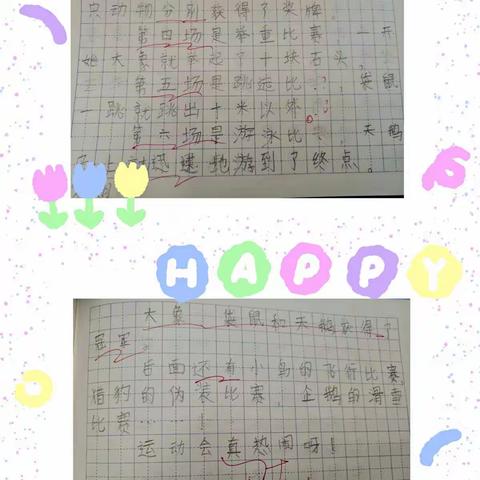 只动物分别获得了奖牌
第四场是举重比赛,一开
始大象就举起了十块石头,
第五场是跳远比,袋鼠
一跳就跳出十米以外。
第六场是游泳比,天鹅
迅速地游到了终点。
HAPPY
大象、袋鼠和天鹅获得了
冠军。
后面还有小鸟的飞行比赛,
猎豹的伪装比赛,企鹅的滑雪
比赛……!
运动会真热闹呀!